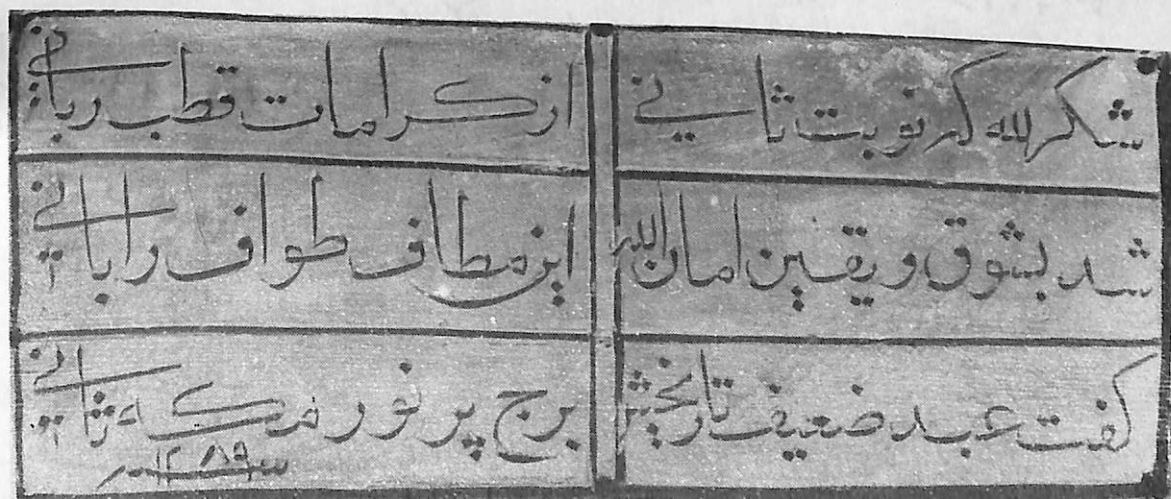 شکر لله که نوبت ثانی از کرامات قطب ربانی
شد بشوق و یقین امان الله این مطاف طواف را بانی
گفت عبد ضعیف تاریخش برج پر نور مکهٔ ثانی
سنه ١٢٨٩